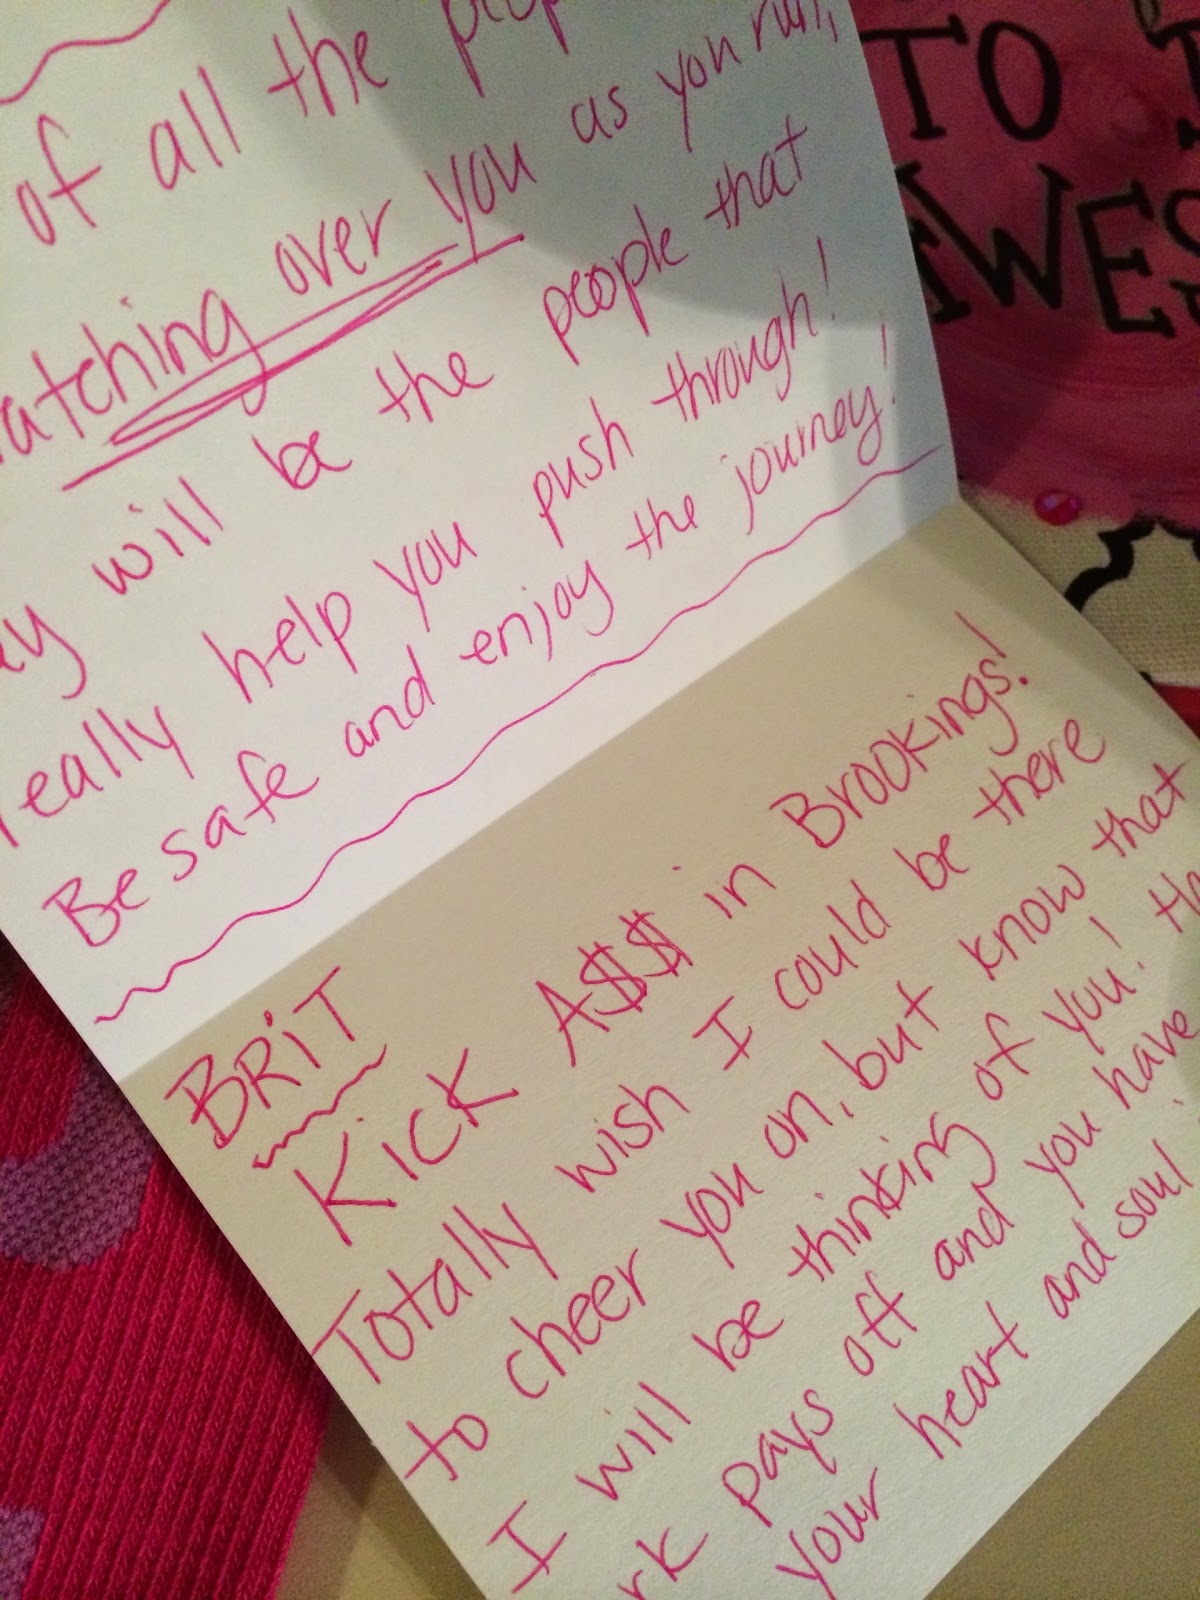 of all the
atching over you as you run,
will be the people that
really help you push through!
Be safe and enjoy the journey!
BRIT
Kick A$$ in Brookings!
Totally wish I could be there
to cheer you on, but know that
I will be thinking of you!
pays off and you have
your heart and soul
TO
AWES